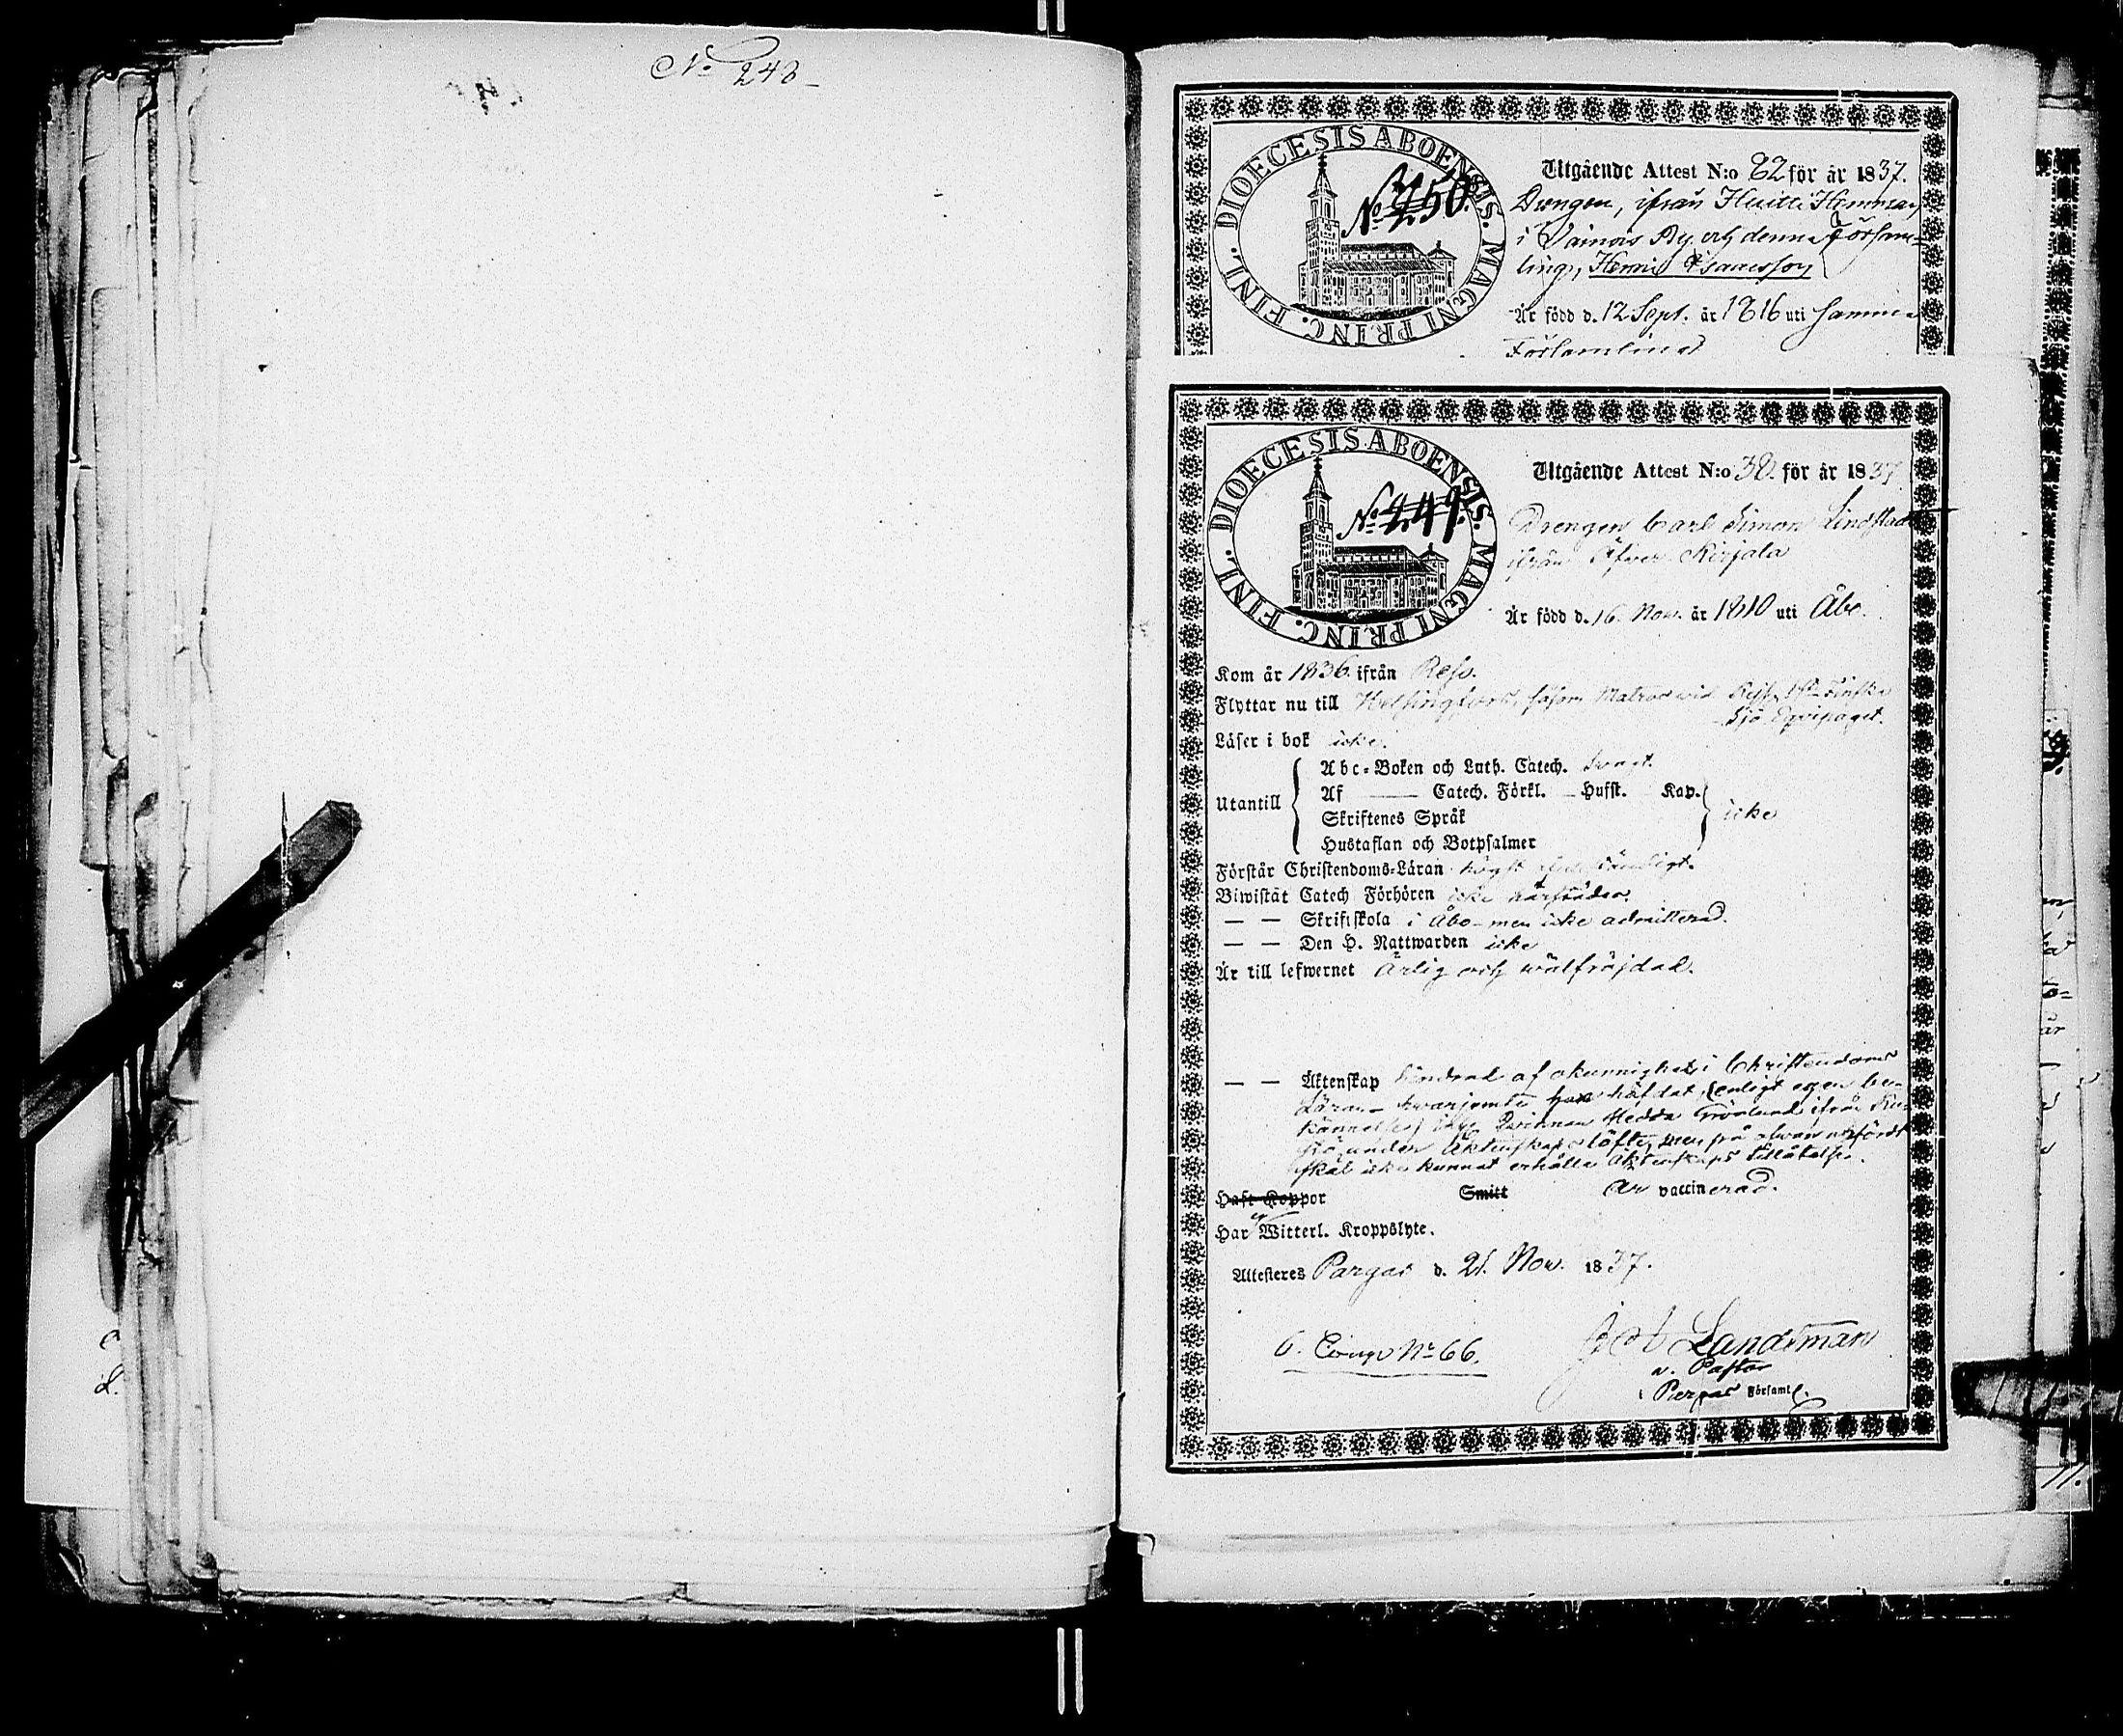 No 248
DIOECESIS ABOENSIS. MAGNI PRINC. FINL.
No 250.
Utgående Attest N:o 82 för år 1837.
Drengen, ifrån Huitti Hemman
i Vainois By och denna Försam-
ling, Henric Isaacsson
Är född d. 12 Sept. år 1816 uti samma
Församling
DIOECESIS ABOENSIS. MAGNI PRINC. FINL.
No 249.
Utgående Attest N:o 38. för år 1837
Drengen Carl Simon Lindstad
ifrån Öfver Kirjala
Är född d. 16 Nov. år 1810 uti Åbo.
Kom år 1836. ifrån Reso.
Flyttar nu till Helsingfors, såsom Matros vid Kejs. 1sta Finska
Sjö Equipaget.
Läser i bok icke.
Utantill
Abc-Boken och Luth. Catech. svagt.
Af — Catech. Förkl. — Hufst. Kap.
Skriftenes Språk
icke
Hustaflan och Botpsalmer
Förstår Christendoms-Läran högst
Biwistat Catech Förhören icke härstädes.
— — Skriftskola i Åbo – men icke admitterad.
— — Den H. Nattwarden icke
Är till lefwernet ärlig och wälfräjdad.
— — Äktenskap hindrad af okunnighet i Christendoms
Läran – hvarjemte han häfdat, (enligt egen be-
kännelse) Qvinnan Hedda Grönlund ifrån
under Äktenskaps löfte, men på ofvan anförde
skäl icke kunnat erhålla Äktenskaps tillåtelse.
Haft Koppor Smitt är vaccinerad.
Har ej Witterl. Kroppslyte.
Attesteres Pargas d. 21. Nov. 1837.
6. Comp No 66.
Landtman
v. Pastor
i Pargas Församl.